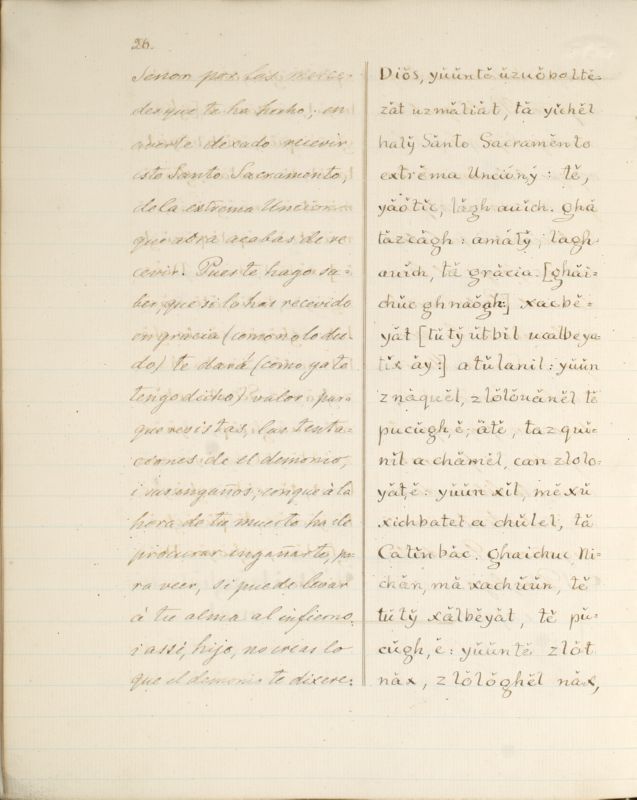 26.
Señor por las merce-
des que te ha hecho; en
averte dexado recevir
este Santo Sacramento,
de la extrema Uncion
que aora acabas de re
cevir. Pues te hago sa=
ber, que si lo has recevido
en gracia (como no lo du-
do) te dará (como ya te
tengo dicho) valor para
que resistas, las tenta=
ciones de el demonio,
i sus engaños; conque à la
hora de tu muerte ha de
procurar ingañarte, pa-
ra veer, si puede llevar
à tu alma al infierno,
i assi, hijo, no creas lo
que el demonio te dixere:
Diŏs, yŭŭntĕ ŭzuŏboltĕ=
zăt uzmăliăt, tă yĭchĕl
halỹ Sănto Sacramĕnto
extrĕma Unciónỹ: tĕ,
yăŏtĭc, lăgh auĭch. ghă
tăzcăgh: amătỹ, lagh
auĭch, tă grăcia. [ghăi=
chŭc ghnaŏgh] xacbĕ=
yăt [tŭtỹ ŭtbil ucalbeya
tĭx ăy:] atŭlanil: yŭŭn
znăquĕl, zlŏlŏuănĕl tĕ
pucŭgh, ĕ, ătĕ, tazquĭ=
nĭl a chămĕl, can zlolo=
yăt, ĕ: yŭŭn xĭl, mĕ xŭ
xichbatet a chŭlel, tă
Catĭnbăc. ghaichuc, Ni=
chăn, mă xachŭŭn, tĕ
tŭtỹ xălbĕyăt, tĕ pŭ=
cŭgh, ĕ: yŭŭntĕ zlŏt
năx, zlŏlŏghĕl năx,